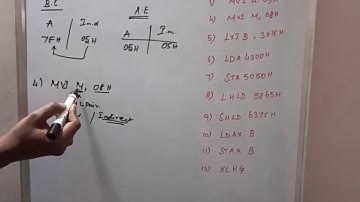 B.E.
A.E
A I.m.d
A I.m
7EH 05H
05H 05H
4) MVI M, 08H
Indirect
4) MVI M, 08H
5) LXI B, 301EH
6) LDA 4300H
7) STA 5050H
8) LHLD 5865H
9) SHLD 6375H
10) LDAX B
11) STAX B
12) XCHG